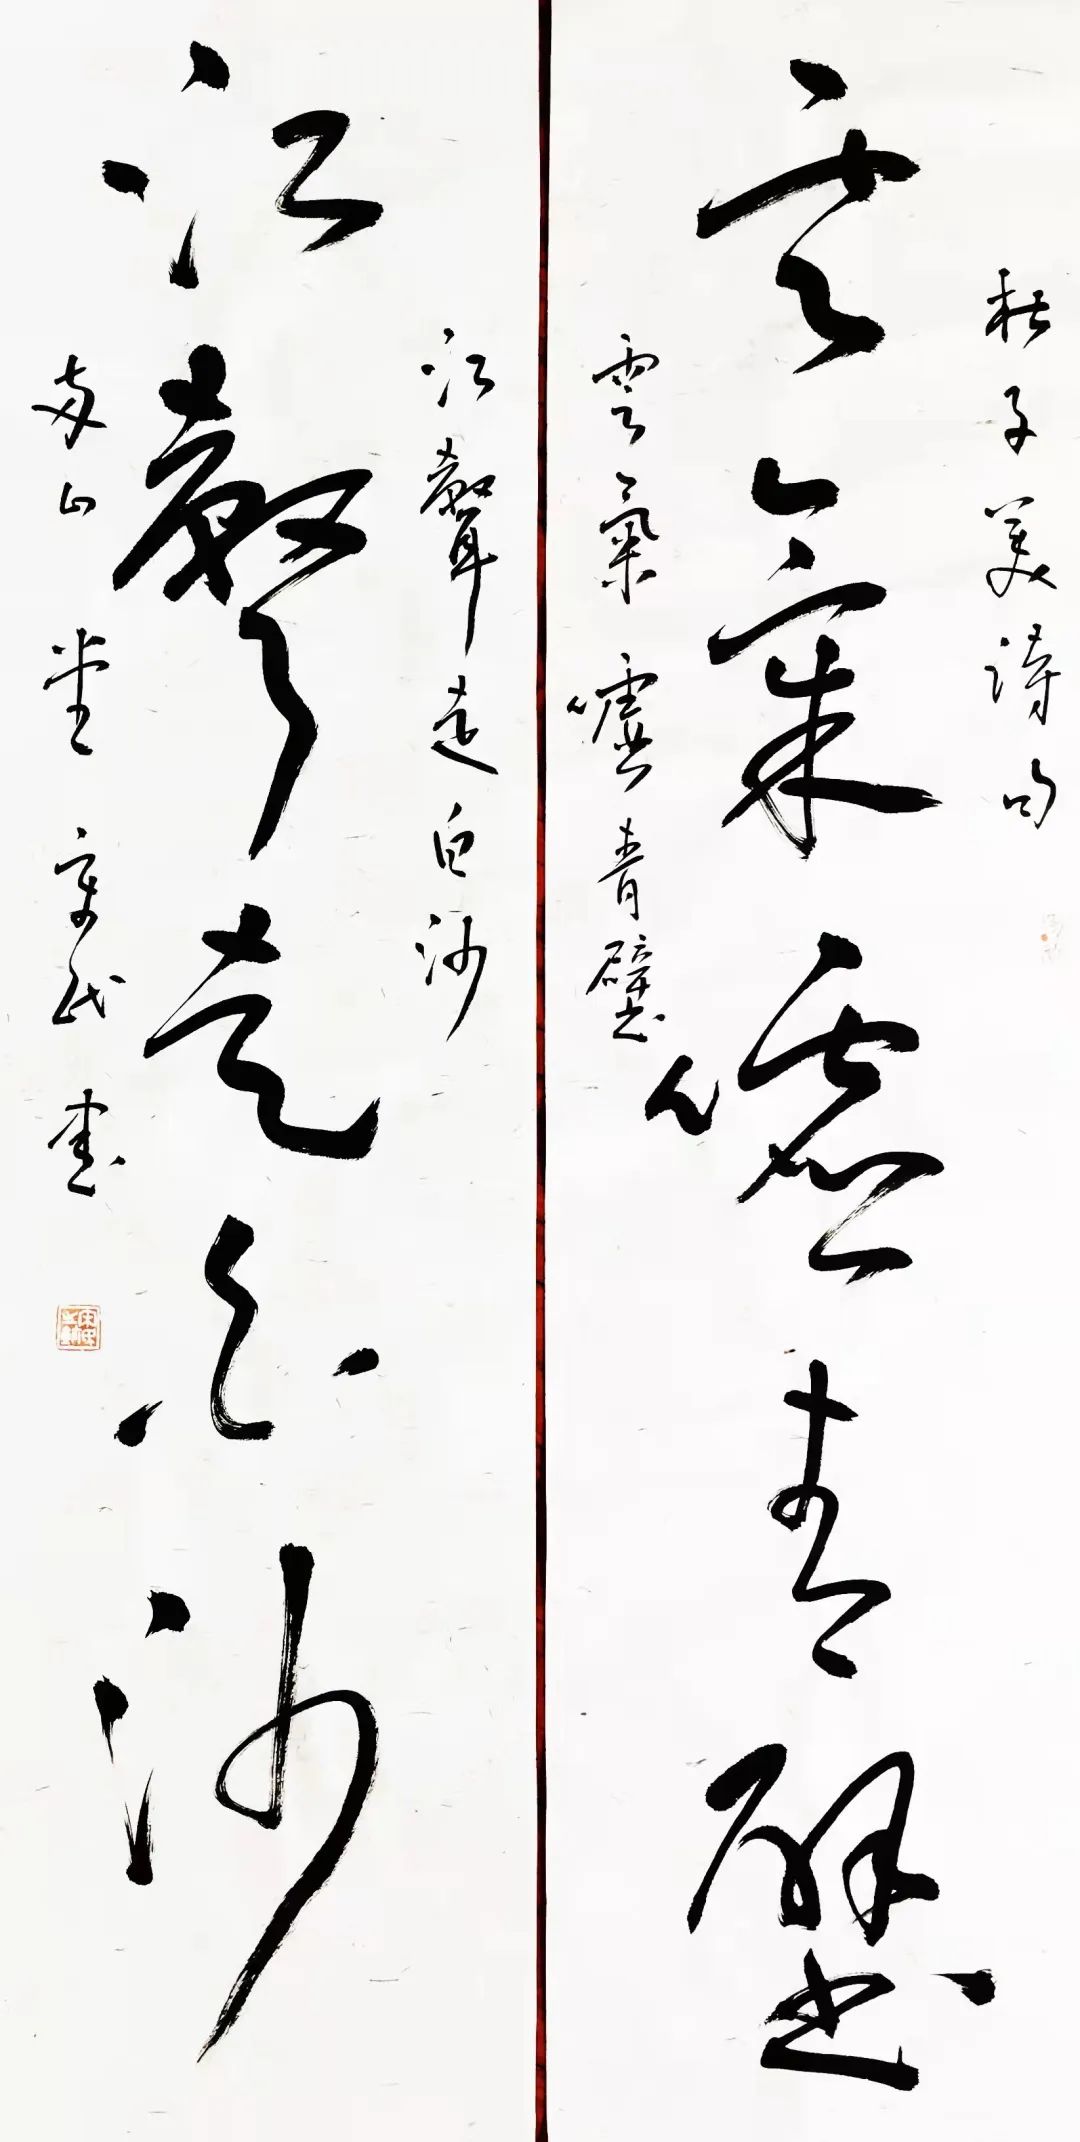 杜子美詩句
雲氣嘘青壁
雲氣嘘青壁
江聲走白沙
江聲走白沙
山堂宋民書